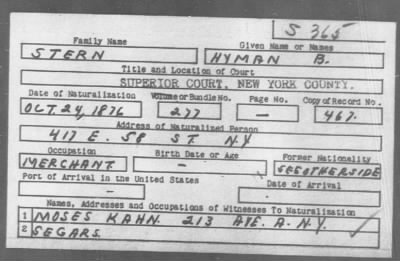 S 365
Family Name Given Name or Names
STERN HYMAN B.
Title and Location of Court
SUPERIOR COURT, NEW YORK COUNTY.
Date of Naturalization Volume or Bundle No. Page No. Copy of Record No.
OCT. 24, 1876 277 — 467.
Address of Naturalized Person
417 E. 58 ST. N.Y
Occupation Birth Date or Age Former Nationality
MERCHANT. - SEE OTHERSIDE
Port of Arrival in the United States Date of Arrival
- -
Names, Addresses and Occupations of Witnesses To Naturalization
1 MOSES KAHN. 213 AVE. A. N.Y.
2 SEGARS.